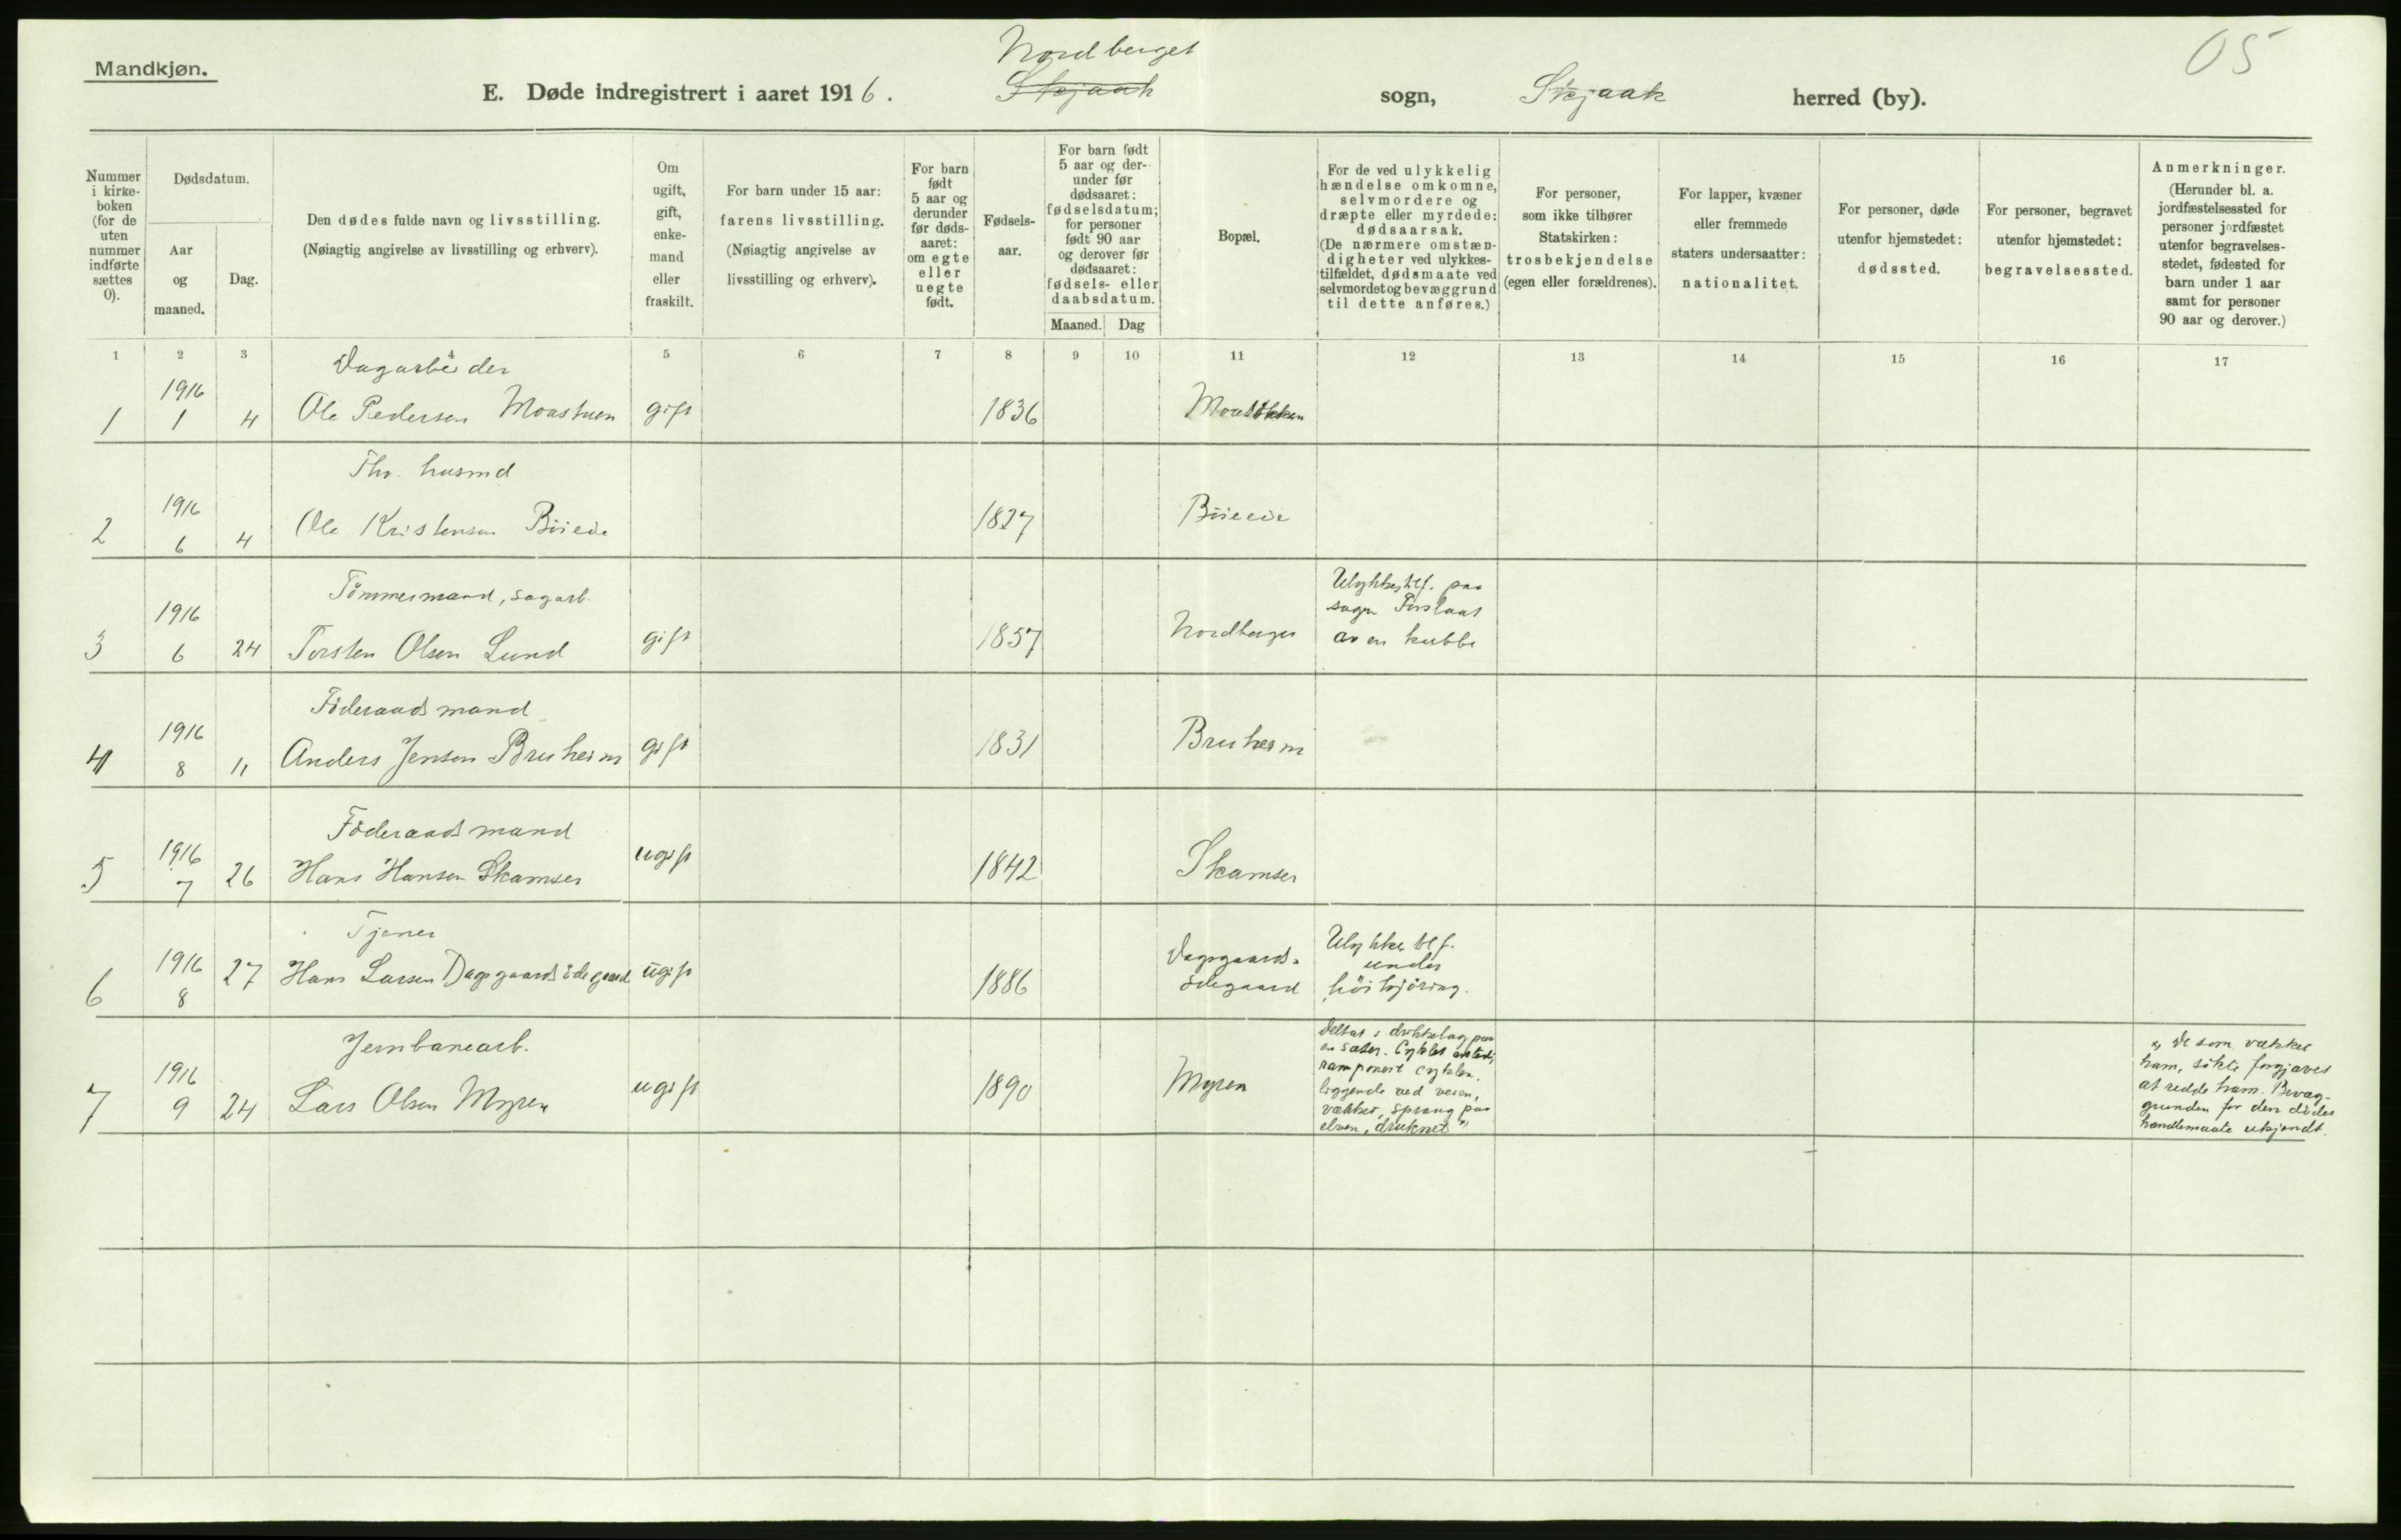 Mandkjøn.
Nordberget
05
E. Døde indregistrert i aaret 1916. Skjaak sogn, Skjaak herred (by).
Nummer i kirke-boken (for de uten nummer indførte sættes 0).
Dødsdatum.
Aar og maaned.
Dag.
Den dødes fulde navn og livsstilling.
(Nøiagtig angivelse av livsstilling og erhverv).
Om ugift, gift, enke-mand eller fraskilt.
For barn under 15 aar: farens livsstilling.
(Nøiagtig angivelse av livsstilling og erhverv).
For barn født 5 aar og derunder før døds-aaret: om egte eller uegte født.
Fødsels-aar.
For barn født 5 aar og der-under før dødsaaret: fødselsdatum; for personer født 90 aar og derover før dødsaaret: fødsels- eller daabsdatum.
Maaned. Dag
Bopæl.
For de ved ulykkelig hændelse omkomne, selvmordere og dræpte eller myrdede: dødsaarsak.
(De nærmere omstæn-digheter ved ulykkes-tilfældet, dødsmaate ved selvmordet og bevæggrund til dette anføres.)
For personer, som ikke tilhører Statskirken: trosbekjendelse (egen eller forældrenes).
For lapper, kvæner eller fremmede staters undersaatter: nationalitet.
For personer, døde utenfor hjemstedet: dødssted.
For personer, begravet utenfor hjemstedet: begravelsessted.
Anmerkninger.
(Herunder bl. a. jordfæstelsessted for personer jordfæstet utenfor begravelses-stedet, fødested for barn under 1 aar samt for personer 90 aar og derover.)
1 2 3 4 5 6 7 8 9 10 11 12 13 14 15 16 17
Dagarbeider
1916
1 1 4 Ole Pedersen Moastuen gift 1836
Fhv. husmd
1916
2 6 4 Ole Kristensen Böieeie 1827 Böieeie
Tömmermand, sagarb.
1916
3 6 24 Torsten Olsen Lund gift 1857 Nordberget
Ulykkestlf. paa
sagen Ihjelslaat
av en kubbe
Föderaadsmand
1916
4 8 11 Anders Jensen Bruheim gift 1831 Bruheim
Föderaadsmand
1916
5 7 26 Hans Hansen Skamser ugift 1842 Skamser
Tjener
1916
6 8 27 Hans Larsen Dagsgaardsödegaard ugift 1886
Dagsgaards-
ödegaard
Ulykkestlf.
under
höikjöring.
Jernbanearb.
1916
7 9 24 Lars Olsen Myren ugift 1890 Myren
Deltat i drikkelag paa
en sæter. Cyklet
ramponert cyklen.
liggende ved veien,
vækket, sprang paa
elven, druknet "
" De som vækket
ham, sökte forgjæves
at redde ham. Bevæg-
grunden for den dödes
handlemaate ukjendt.